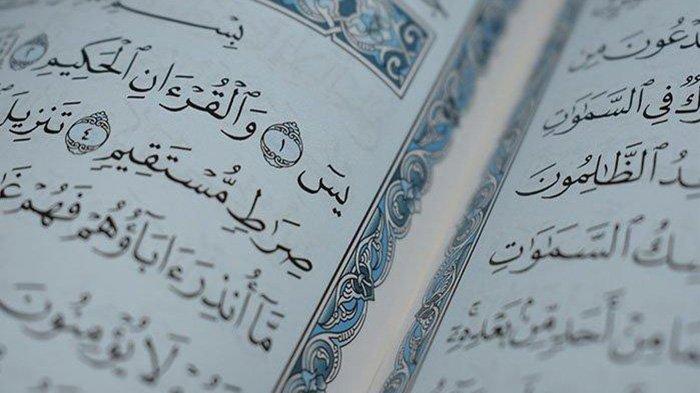 دْعُونَ مِن
كٌ فِى ٱلسَّمَٰوَٰتِ
دُ ٱلظَّٰلِمُونَ
سِكُ ٱلسَّمَٰوَٰتِ
مَا مِنْ أَحَدٍ مِّنۢ بَعْدِهِۦٓ
بِسْمِ
يسٓ ١ وَٱلْقُرْءَانِ ٱلْحَكِيمِ ٢
صِرَٰطٍ مُّسْتَقِيمٍ ٤ تَنزِيلَ
مَّآ أُنذِرَ ءَابَآؤُهُمْ فَهُمْ غَٰ
لَا يُؤْمِنُونَ